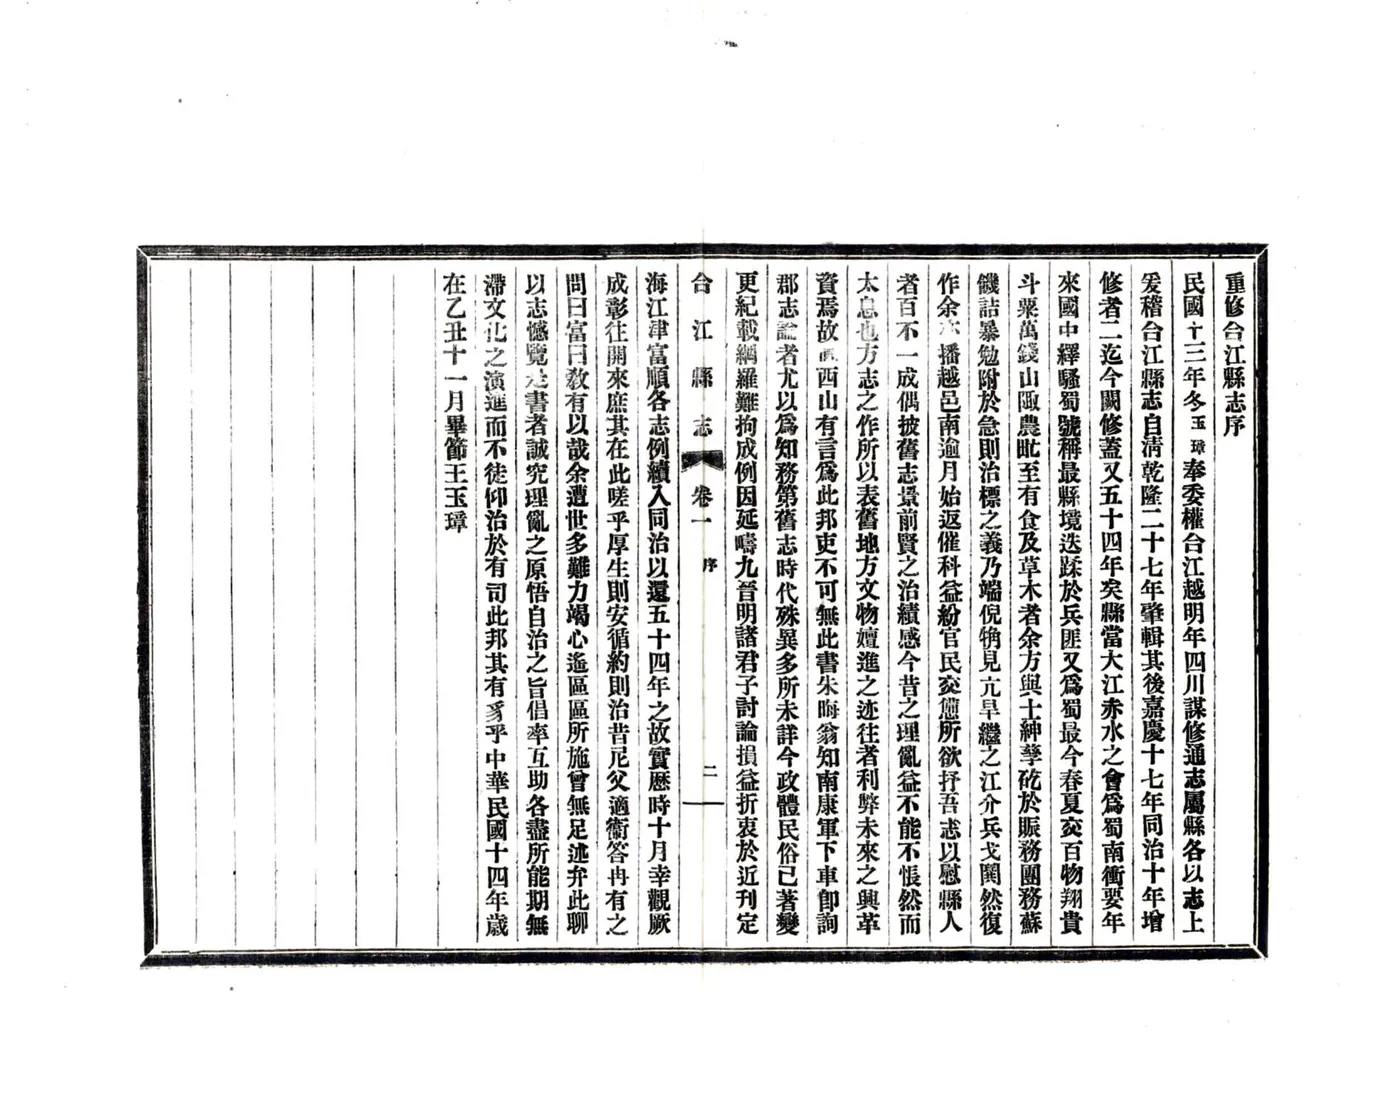 重修合江縣志序
民國十三年冬玉璋奉委權合江越明年四川謀修通志屬縣各以志上
爰稽合江縣志自清乾隆二十七年肇輯其後嘉慶十七年同治十年增
修者二迄今闕修蓋又五十四年矣縣當大江赤水之會爲蜀南衝要年
來國中繹騷蜀號稱最縣境迭蹂於兵匪又爲蜀最今春夏交百物翔貴
斗粟萬錢山陬農甿至有食及草木者余方與士紳孳矻於賑務團務蘇
饑詰暴勉附於急則治標之義乃端倪犄見亢旱繼之江介兵戈鬨然復
作余亦播越邑南逾月始返催科益紛官民交憊所欲抒吾志以慰縣人
者百不一成偶披舊志景前賢之治績感今昔之理亂益不能不悵然而
太息也方志之作所以表舊地方文物嬗進之迹往者利弊未來之興革
資焉故眞西山有言爲此邦吏不可無此書朱晦翁知南康軍下車卽詢
郡志論者尤以爲知務第舊志時代殊異多所未詳今政體民俗已著變
更紀載綱羅難拘成例因延疇九晉明諸君子討論損益折衷於近刊定
合江縣志 卷一 序 二
海江津富順各志例續入同治以還五十四年之故實歷時十月幸觀厥
成彰往開來庶其在此嗟乎厚生則安循約則治昔尼父適衞答冉有之
問曰富曰敎有以哉余遭世多難力竭心遙區區所施曾無足述弁此聊
以志憾覽是書者誠究理亂之原悟自治之旨倡率互助各盡所能期無
滯文化之演進而不徒仰治於有司此邦其有豸乎中華民國十四年歲
在乙丑十一月畢節王玉璋